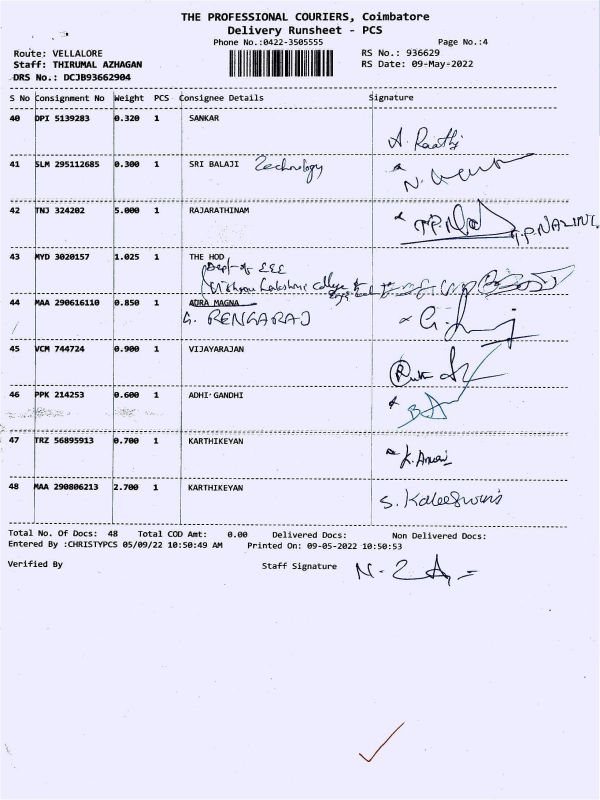 THE PROFESSIONAL COURIERS, Coimbatore
Delivery Runsheet - PCS
Phone No.:0422-3505555 Page No.:4
Route: VELLALORE RS No.: 936629
Staff: THIRUMAL AZHAGAN RS Date: 09-May-2022
DRS No.: DCJB93662904
S No Consignment No Weight PCS Consignee Details Signature
40 DPI 5139283 0.320 1 SANKAR
A. Raathi
41 SLM 295112685 0.300 1 SRI BALAJI Technology
42 TNJ 324202 5.000 1 RAJARATHINAM
T.P.NALINI.
43 MYD 3020157 1.025 1 THE HOD
Dept of EEE
college of
44 MAA 290616110 0.850 1 ADRA MAGNA
G. RENGARAJ
45 VCM 744724 0.900 1 VIJAYARAJAN
46 PPK 214253 0.600 1 ADHI GANDHI
47 TRZ 56895913 0.700 1 KARTHIKEYAN
48 MAA 290806213 2.700 1 KARTHIKEYAN
Total No. Of Docs: 48 Total COD Amt: 0.00 Delivered Docs: Non Delivered Docs:
Entered By :CHRISTYPCS 05/09/22 10:50:49 AM Printed On: 09-05-2022 10:50:53
Verified By Staff Signature